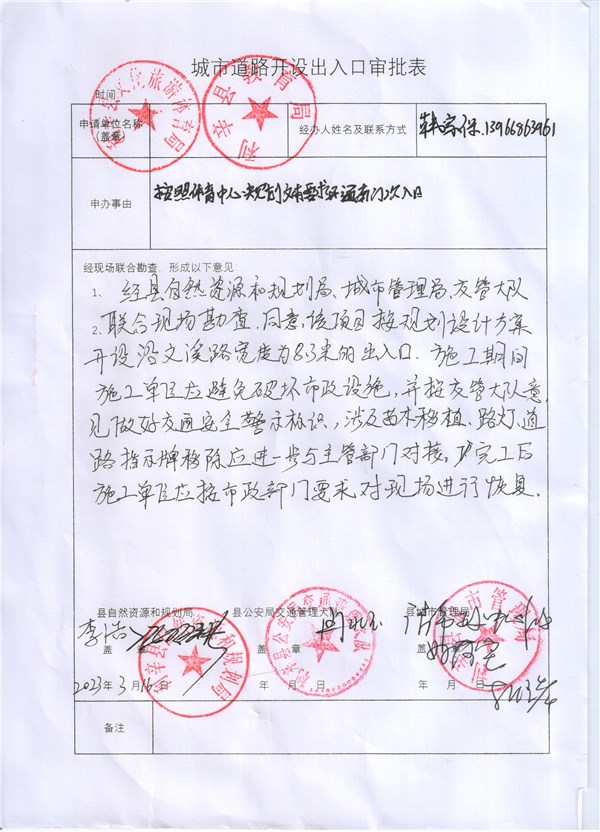 城市道路开设出入口审批表
时间:
利辛县文化旅游体育局
利辛县教育局
申请单位名称
(盖章)
经办人姓名及联系方式
韩宗保.13966863961
申办事由
按照体育中心规划文本要求 南门次入口
经现场联合勘查,形成以下意见:
1、 经县自然资源和规划局、城市管理局、交管大队
2、联合现场勘查,同意该项目按规划设计方案
开设沿文溪路宽度为8.5米的出入口.施工期间
施工单位应避免破坏市政设施,并按交管大队意
见做好交通安全警示标识,涉及苗木移植、路灯、道
路指示牌移除应进一步与主管部门对核,完工后
施工单位应按市政部门要求对现场进行恢复.
县自然资源和规划局 县公安局交通管理大队 县城市管理局
李浩
盖 章 盖 章 盖 章
2023年3月16日 年 月 日 年 月 日
备注